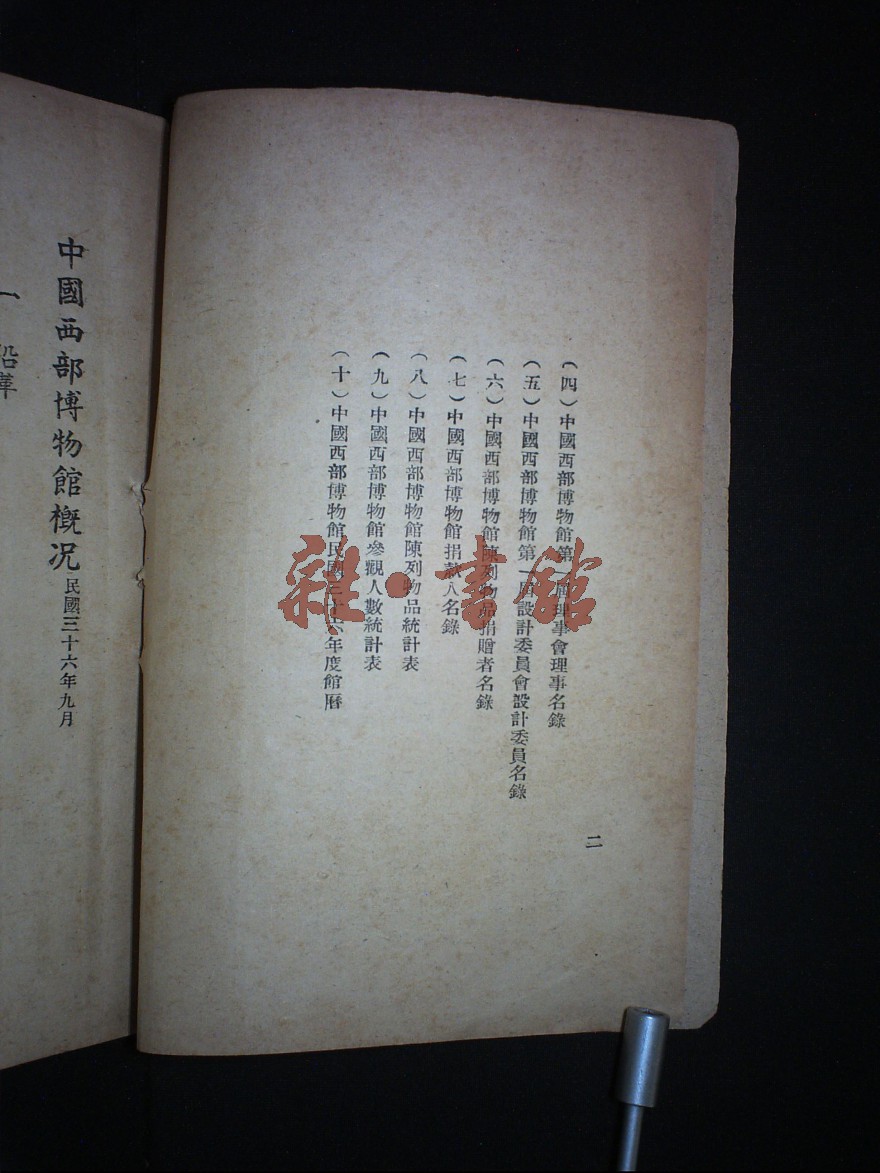 (四)中國西部博物館第一屆理事會理事名錄
(五)中國西部博物館第一屆設計委員會設計委員名錄
(六)中國西部博物館陳列物品捐贈者名錄
(七)中國西部博物館捐款人名錄
(八)中國西部博物館陳列物品統計表
(九)中國西部博物館參觀人數統計表
(十)中國西部博物館民國三十六年度館曆
二
中國西部博物館概況 民國三十六年九月
一 沿革
雜·書館